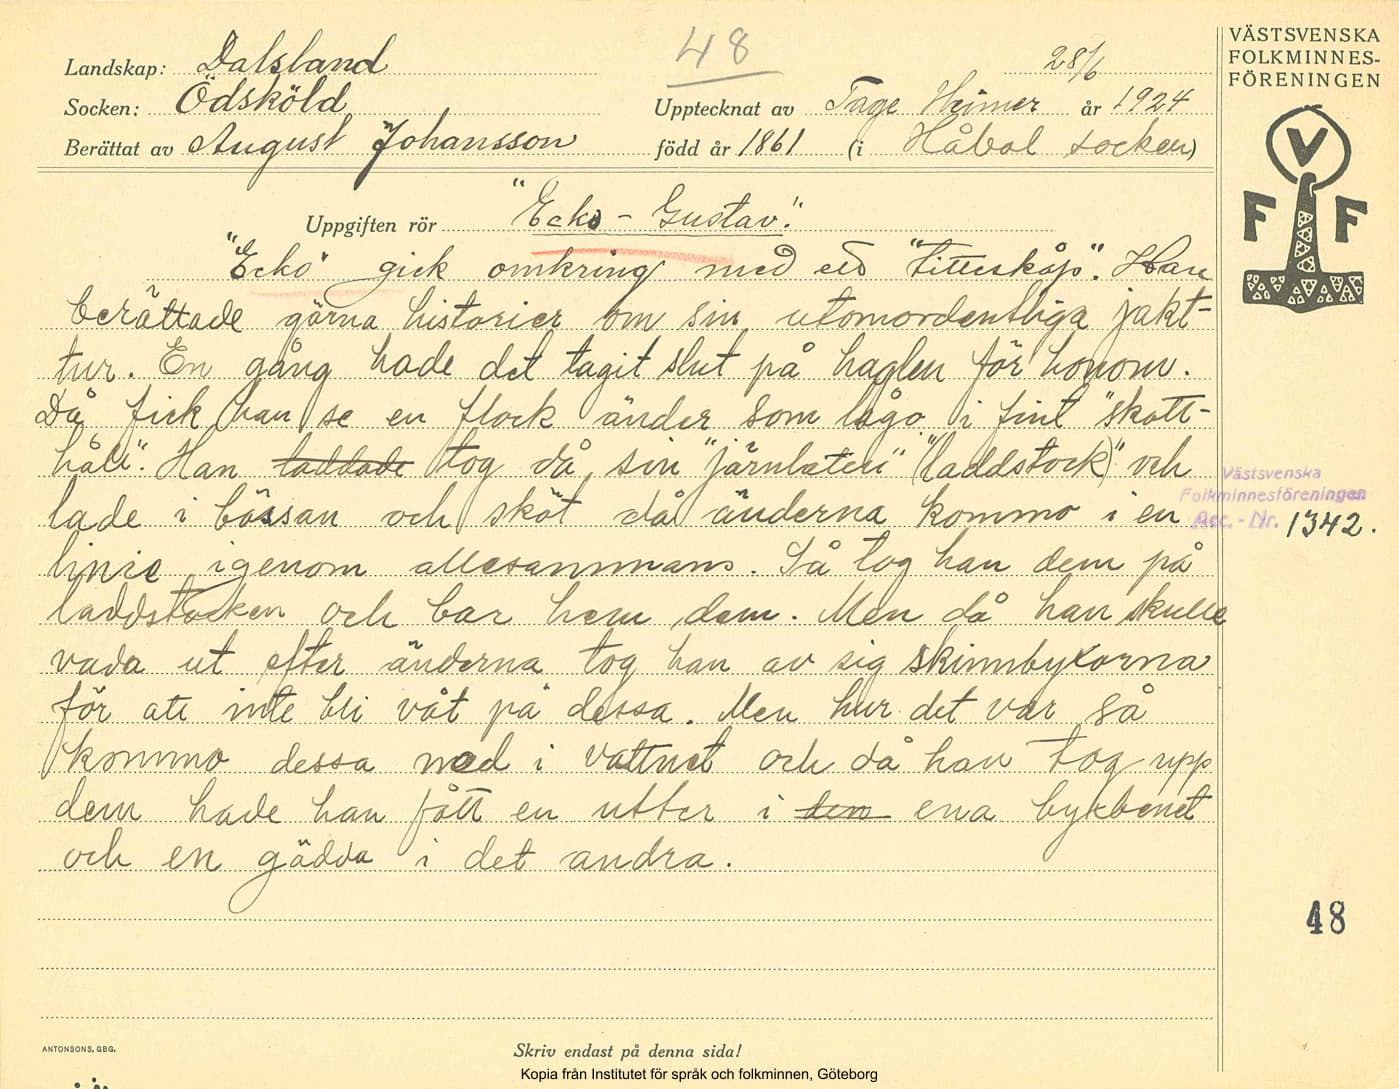 48
VÄSTSVENSKA
FOLKMINNES-
FÖRENINGEN
Landskap: Dalsland
28/6
Socken: Ödsköld
Upptecknat av Tage Heimer år 1924
Berättat av August Johansson
född år 1861 (i Håbol socken)
V
F F
Uppgiften rör "Ecko-Gustav".
"Ecko" gick omkring med ett "tittskåp". Han
berättade gärna historier om sin utomordentliga jakt-
tur. En gång hade det tagit slut på haglen för honom.
Då fick han se en flock änder som lågo i fint "skott-
håll". Han laddade tog då sin "järnlateri" "(laddstock)" och
lade i bössan och sköt då änderna kommo i en
linie igenom allesammans. Så tog han dem på
laddstocken och bar hem dem. Men då han skulle
vada ut efter änderna tog han av sig skinnbyxorna
för att inte bli våt på dessa. Men hur det var så
kommo dessa med i vattnet och då han tog upp
dem hade han fått en utter i den ena byxbenet
och en gädda i det andra.
Västsvenska
Folkminnesföreningen
Acc. - Nr. 1342.
48
ANTONSONS, GBG.
Skriv endast på denna sida!
Kopia från Institutet för språk och folkminnen, Göteborg